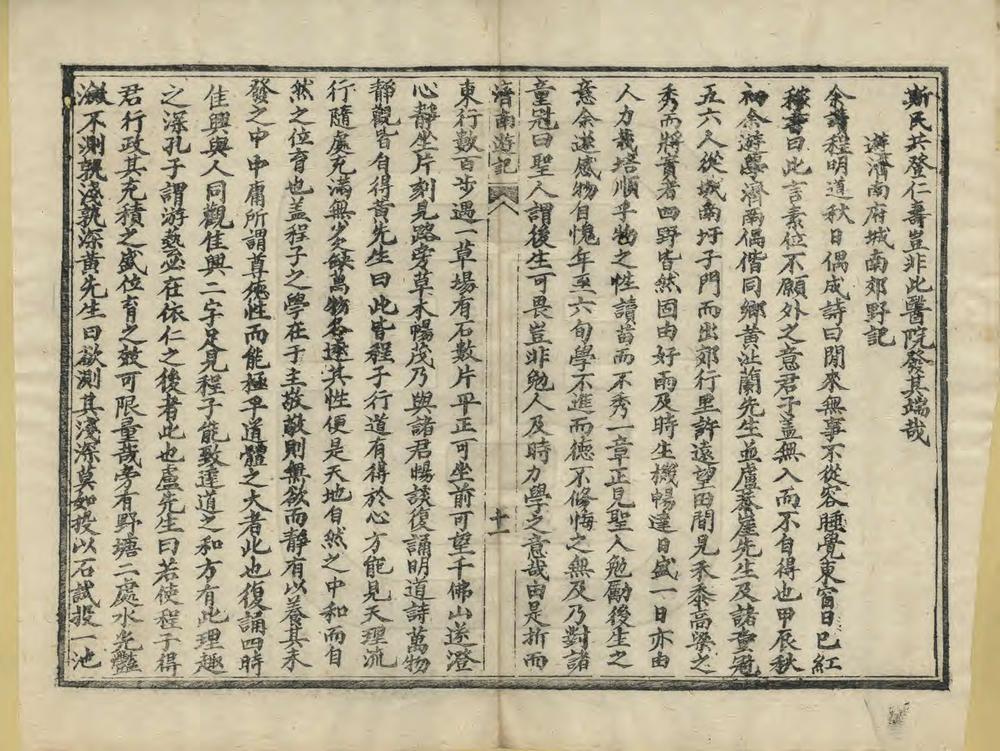 斯民共登仁壽豈非此醫院發其端哉
遊濟南府城南郊野記
余讀程明道秋日偶成詩曰閒來無事不從容睡覺東窗日已紅
釋書曰此言素位不願外之意君子蓋無入而不自得也甲辰秋
初余遊學濟南偶偕同鄉黃沚蘭先生並盧養崖先生及諸童冠
五六人從城南圩子門而出郊行里許遠望田間見禾黍高粱之
秀而將實者四野皆然固由好雨及時生機暢達日盛一日亦由
人力栽培順乎物之性讀苗而不秀一章正見聖人勉勵後生之
意余遂感物自愧年至六旬學不進而德不修悔之無及乃對諸
童冠曰聖人謂後生可畏豈非勉人及時力學之意哉由是折而
濟南遊記 十一
東行數百步遇一草場有石數片平正可坐前可望千佛山遂澄
心靜坐片刻見路旁草木暢茂乃與諸君暢談復誦明道詩萬物
靜觀皆自得黃先生曰此皆程子行道有得於心方能見天理流
行隨處充滿無少缺萬物各遂其性便是天地自然之中和而自
然之位育也盖程子之學在于主敬敬則無欲而靜有以養其未
發之中中庸所謂尊德性而能極乎道體之大者此也復誦四時
佳興與人同觀佳興二字足見程子能致達道之和方有此理趣
之深孔子謂游藝必在依仁之後者此也盧先生曰若使程子得
君行政其充積之盛位育之效可限量哉旁有野塘二處水光灩
瀲不測孰淺孰深黃先生曰欲測其淺深莫如投以石試投一池